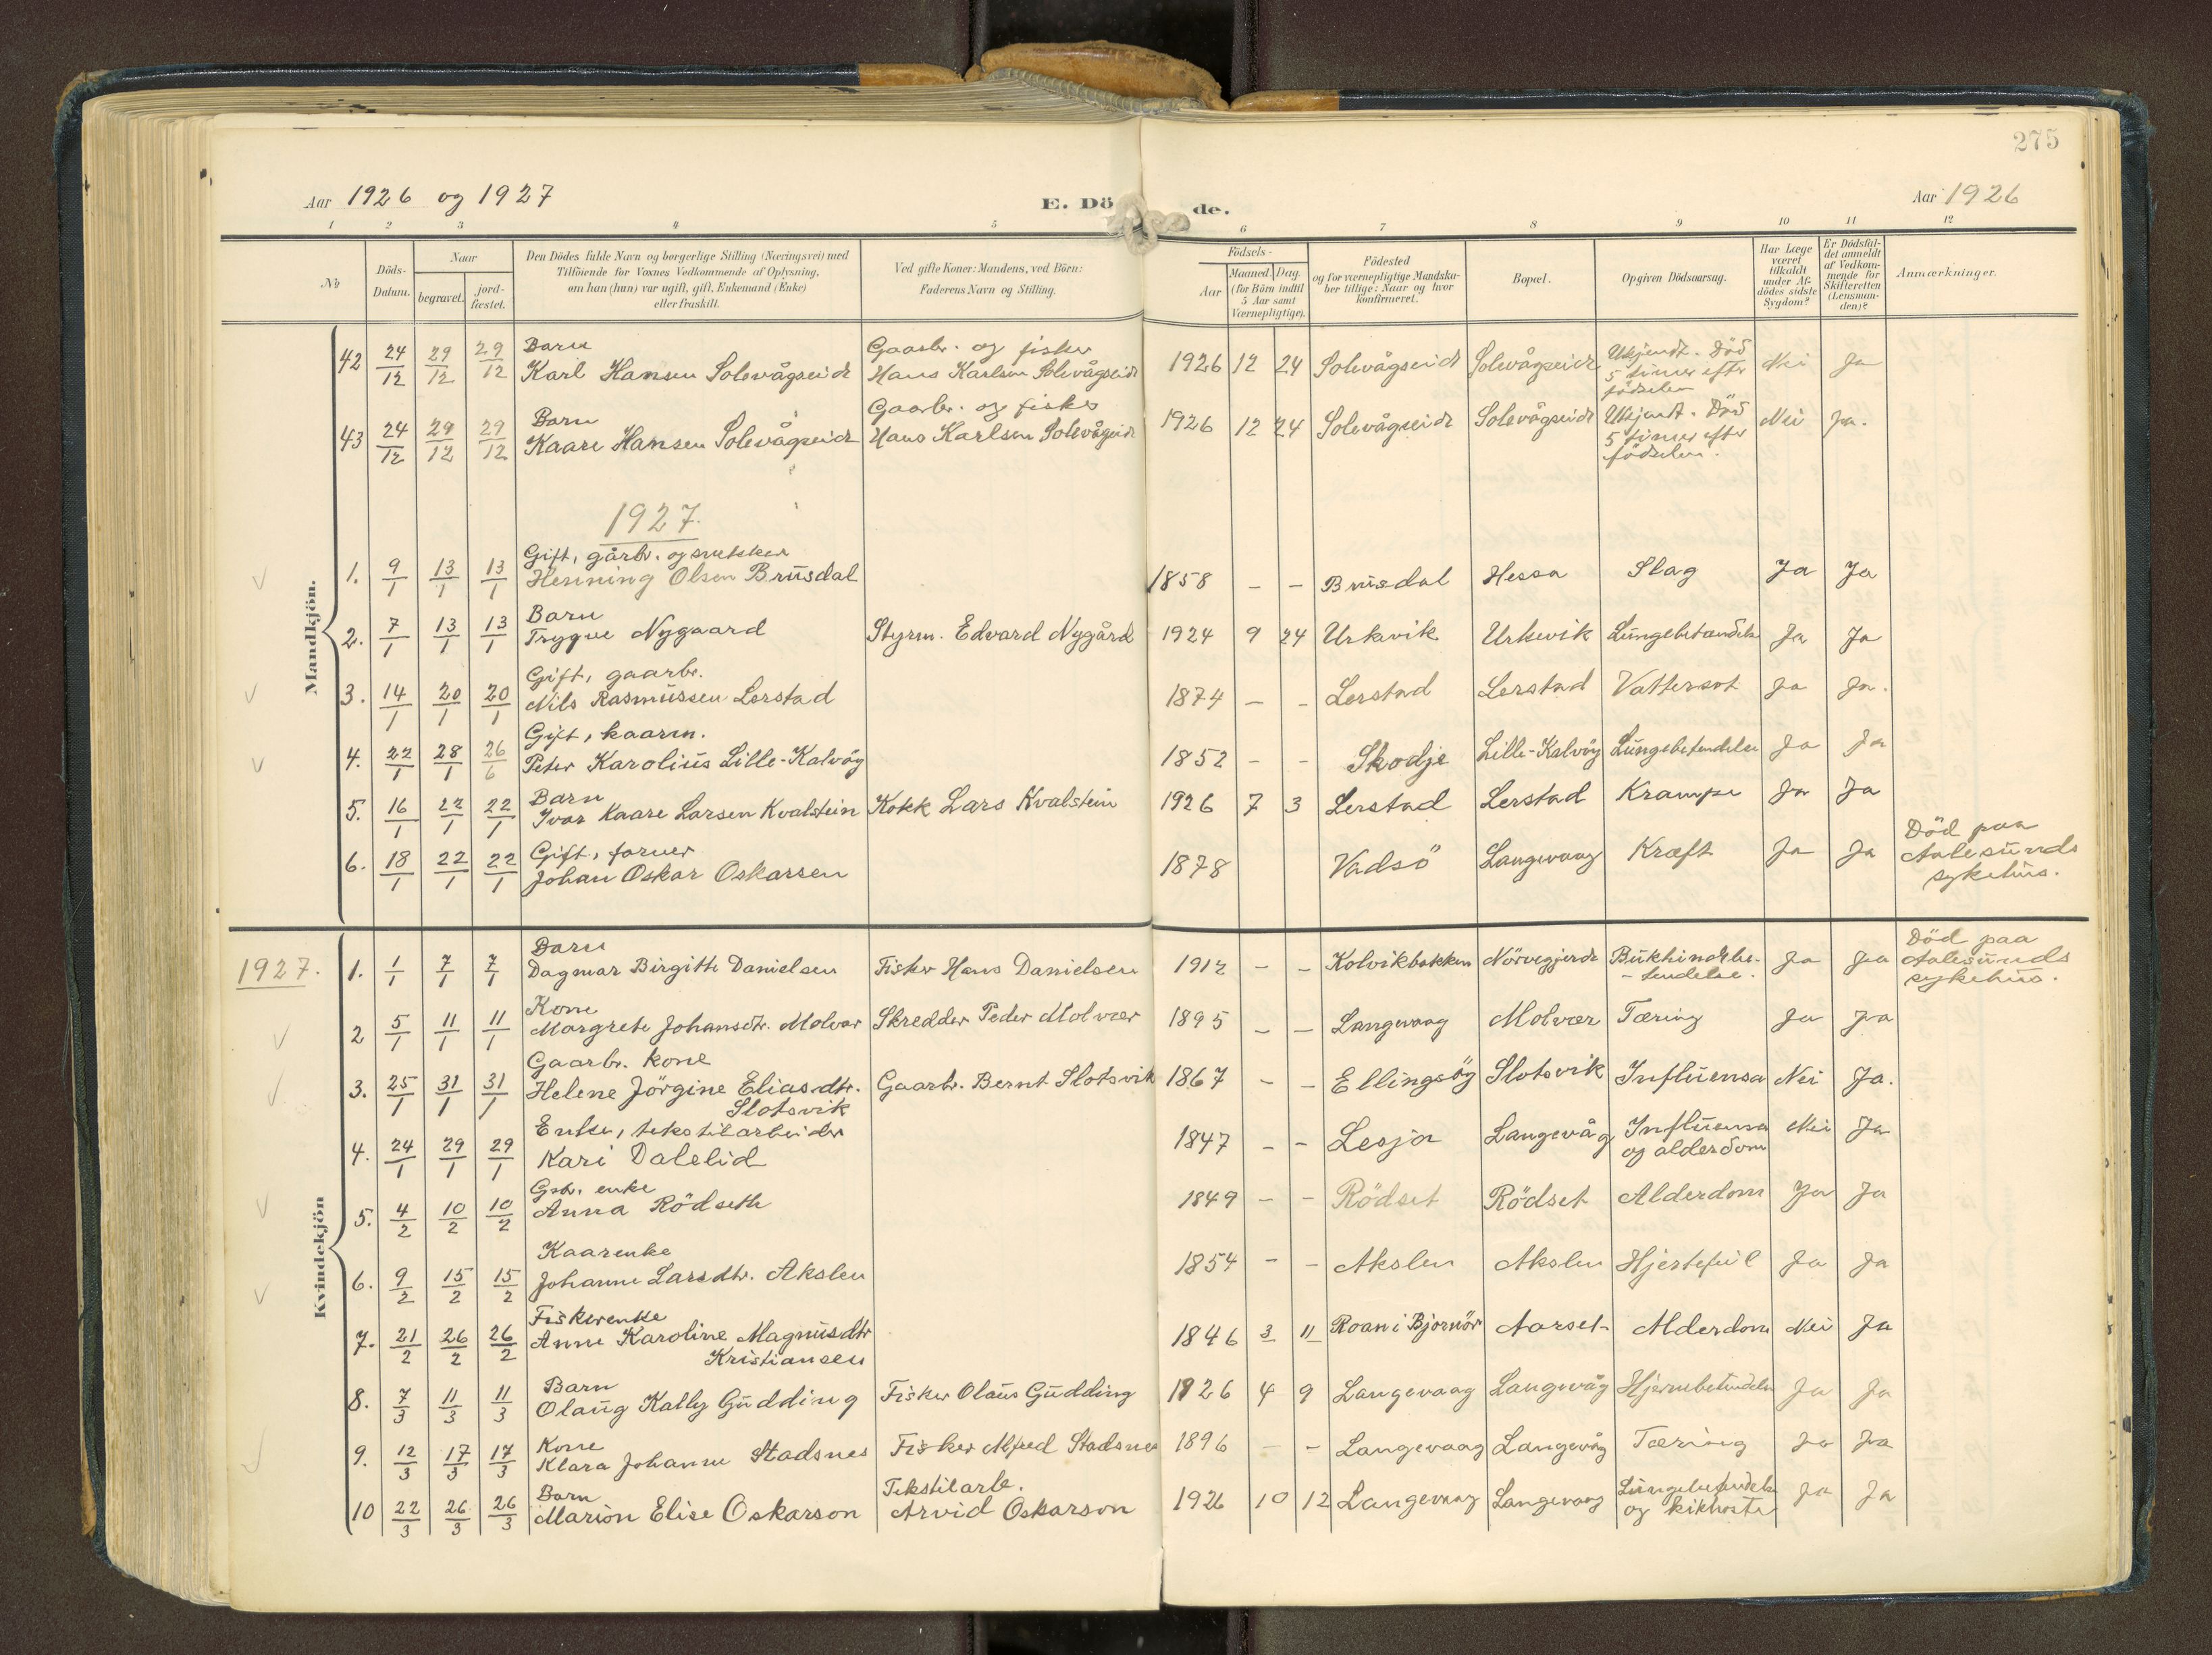 275
Aar 1926 og 1927
E. Dö de.
Aar 1926
1 2 3 4 5 6 7 8 9 10 11 12
No
Döds-Datum.
Naar
begravet.
jord-fæstet.
Den Dödes fulde Navn og borgerlige Stilling (Næringsvei) med
Tilföiende for Voxnes Vedkommende af Oplysning,
om han (hun) var ugift, gift, Enkemand (Enke)
eller fraskilt.
Ved gifte Koner: Mandens, ved Börn:
Faderens Navn og Stilling.
Födsels-
Aar
Maaned. Dag.
(for Börn indtil
5 Aar samt
Værnepligtige).
Födested
og for værnepligtige Mandska-
ber tillige: Naar og hvor
konfirmeret.
Bopæl.
Opgiven Dödsaarsag.
Har Læge
været
tilkaldt
under Af-
dödes sidste
Sygdom?
Er Dödsfal-
det anmeldt
af Vedkom-
mende for
Skifteretten
(Lensman-
den)?
Anmærkninger.
Mandkjön.
Barn Gaarbr. og fisker
42 24/12 29/12 29/12 Karl Hansen Solevågseidt Hans Karlsen Solevågseidt 1926 12 24 Solevågseidt Solevågseidt Ukjendt. Död
5 timer efter
födselen Nei Ja
Barn Gaarbr. og fisker
43 24/12 29/12 29/12 Kaare Hansen Solevågseidt Hans Karlsen Solevågseidt 1926 12 24 Solevågseidt Solevågseidt Ukjendt. Död
5 timer efter
födselen. Nei Ja.
1927.
Gift, gårbr. og snekker
1. 9/1 13/1 13/1 Henning Olsen Brusdal 1858 - - Brusdal Hessa Slag Ja Ja
Barn
2. 7/1 13/1 13/1 Trygve Nygaard Styrm. Edvard Nygård 1924 9 24 Urkevik Urkevik Lungebetændelse Ja Ja
Gift, gaarbr.
3. 14/1 20/1 20/1 Nils Rasmussen Lerstad 1874 - - Lerstad Lerstad Vattersot Ja Ja.
Gift, kaarm.
4. 22/1 28/1 26/6 Peter Karolius Lille-Kalvöy 1852 - - Skodje Lille-Kalvöy Lungebetendelse Ja Ja
Barn
5. 16/1 22/1 22/1 Ivar Kaare Larsen Kvalstein Kokk Lars Kvalstein 1926 7 3 Lerstad Lerstad Krampe Ja Ja
Gift, farver
6. 18/1 22/1 22/1 Johan Oskar Oskarsen 1878 Vadsö Langevaag Kræft Ja Ja Död paa
Aalesunds
sykehus.
1927.
Kvindekjön
Barn
1. 1/1 7/1 7/1 Dagmar Birgitte Danielsen Fisker Hans Danielsen 1912 - - Kolvikbakken Nörvegjerde Bukhindebe-
-tendelse. Ja Ja Död paa
Aalesunds
sykehus.
Kone
2 5/1 11/1 11/1 Margrete Johansdtr. Molvær Skredder Peder Molvær 1895 - - Langevaag Molvær Tæring Ja Ja
Gaarbr. kone
3. 25/1 31/1 31/1 Helene Jörgine Eliasdtr.
Slotsvik Gaarbr. Bernt Slotsvik 1867 - - Ellingsöy Slotsvik Influensa Nei Ja.
Enke, tekstilarbeider
4. 24/1 29/1 29/1 Kari Dalelid 1847 - - Lesja Langevåg Influensa
og alderdom Nei Ja
Gbr. enke
5. 4/2 10/2 10/2 Anna Rödseth 1849 - - Rödset Rödset Alderdom Ja Ja
Kaarenke
6. 9/2 15/2 15/2 Johanne Larsdtr. Akslen 1854 - - Akslen Akslen Hjertefeil Ja Ja
Fiskerenke
7. 21/2 26/2 26/2 Anne Karoline Magnusdtr
Kristiansen 1846 3 11 Roan i Bjørnör Aarset Alderdom Nei Ja
Barn
8. 7/3 11/3 11/3 Olaug Kally Gudding Fisker Olaus Gudding 1926 4 9 Langevaag Langevåg Hjernebetendelse Ja Ja
Kone
9. 12/3 17/3 17/3 Klara Johanne Stadsnes Fisker Alfred Stadsnes 1896 - - Langevaag Langevåg Tæring Ja Ja
Barn Tekstilarb.
10 22/3 26/3 26/3 Marion Elise Oskarson Arvid Oskarson 1926 10 12 Langevaag Langevaag Lungebetendelse
og kikhoste Ja Ja